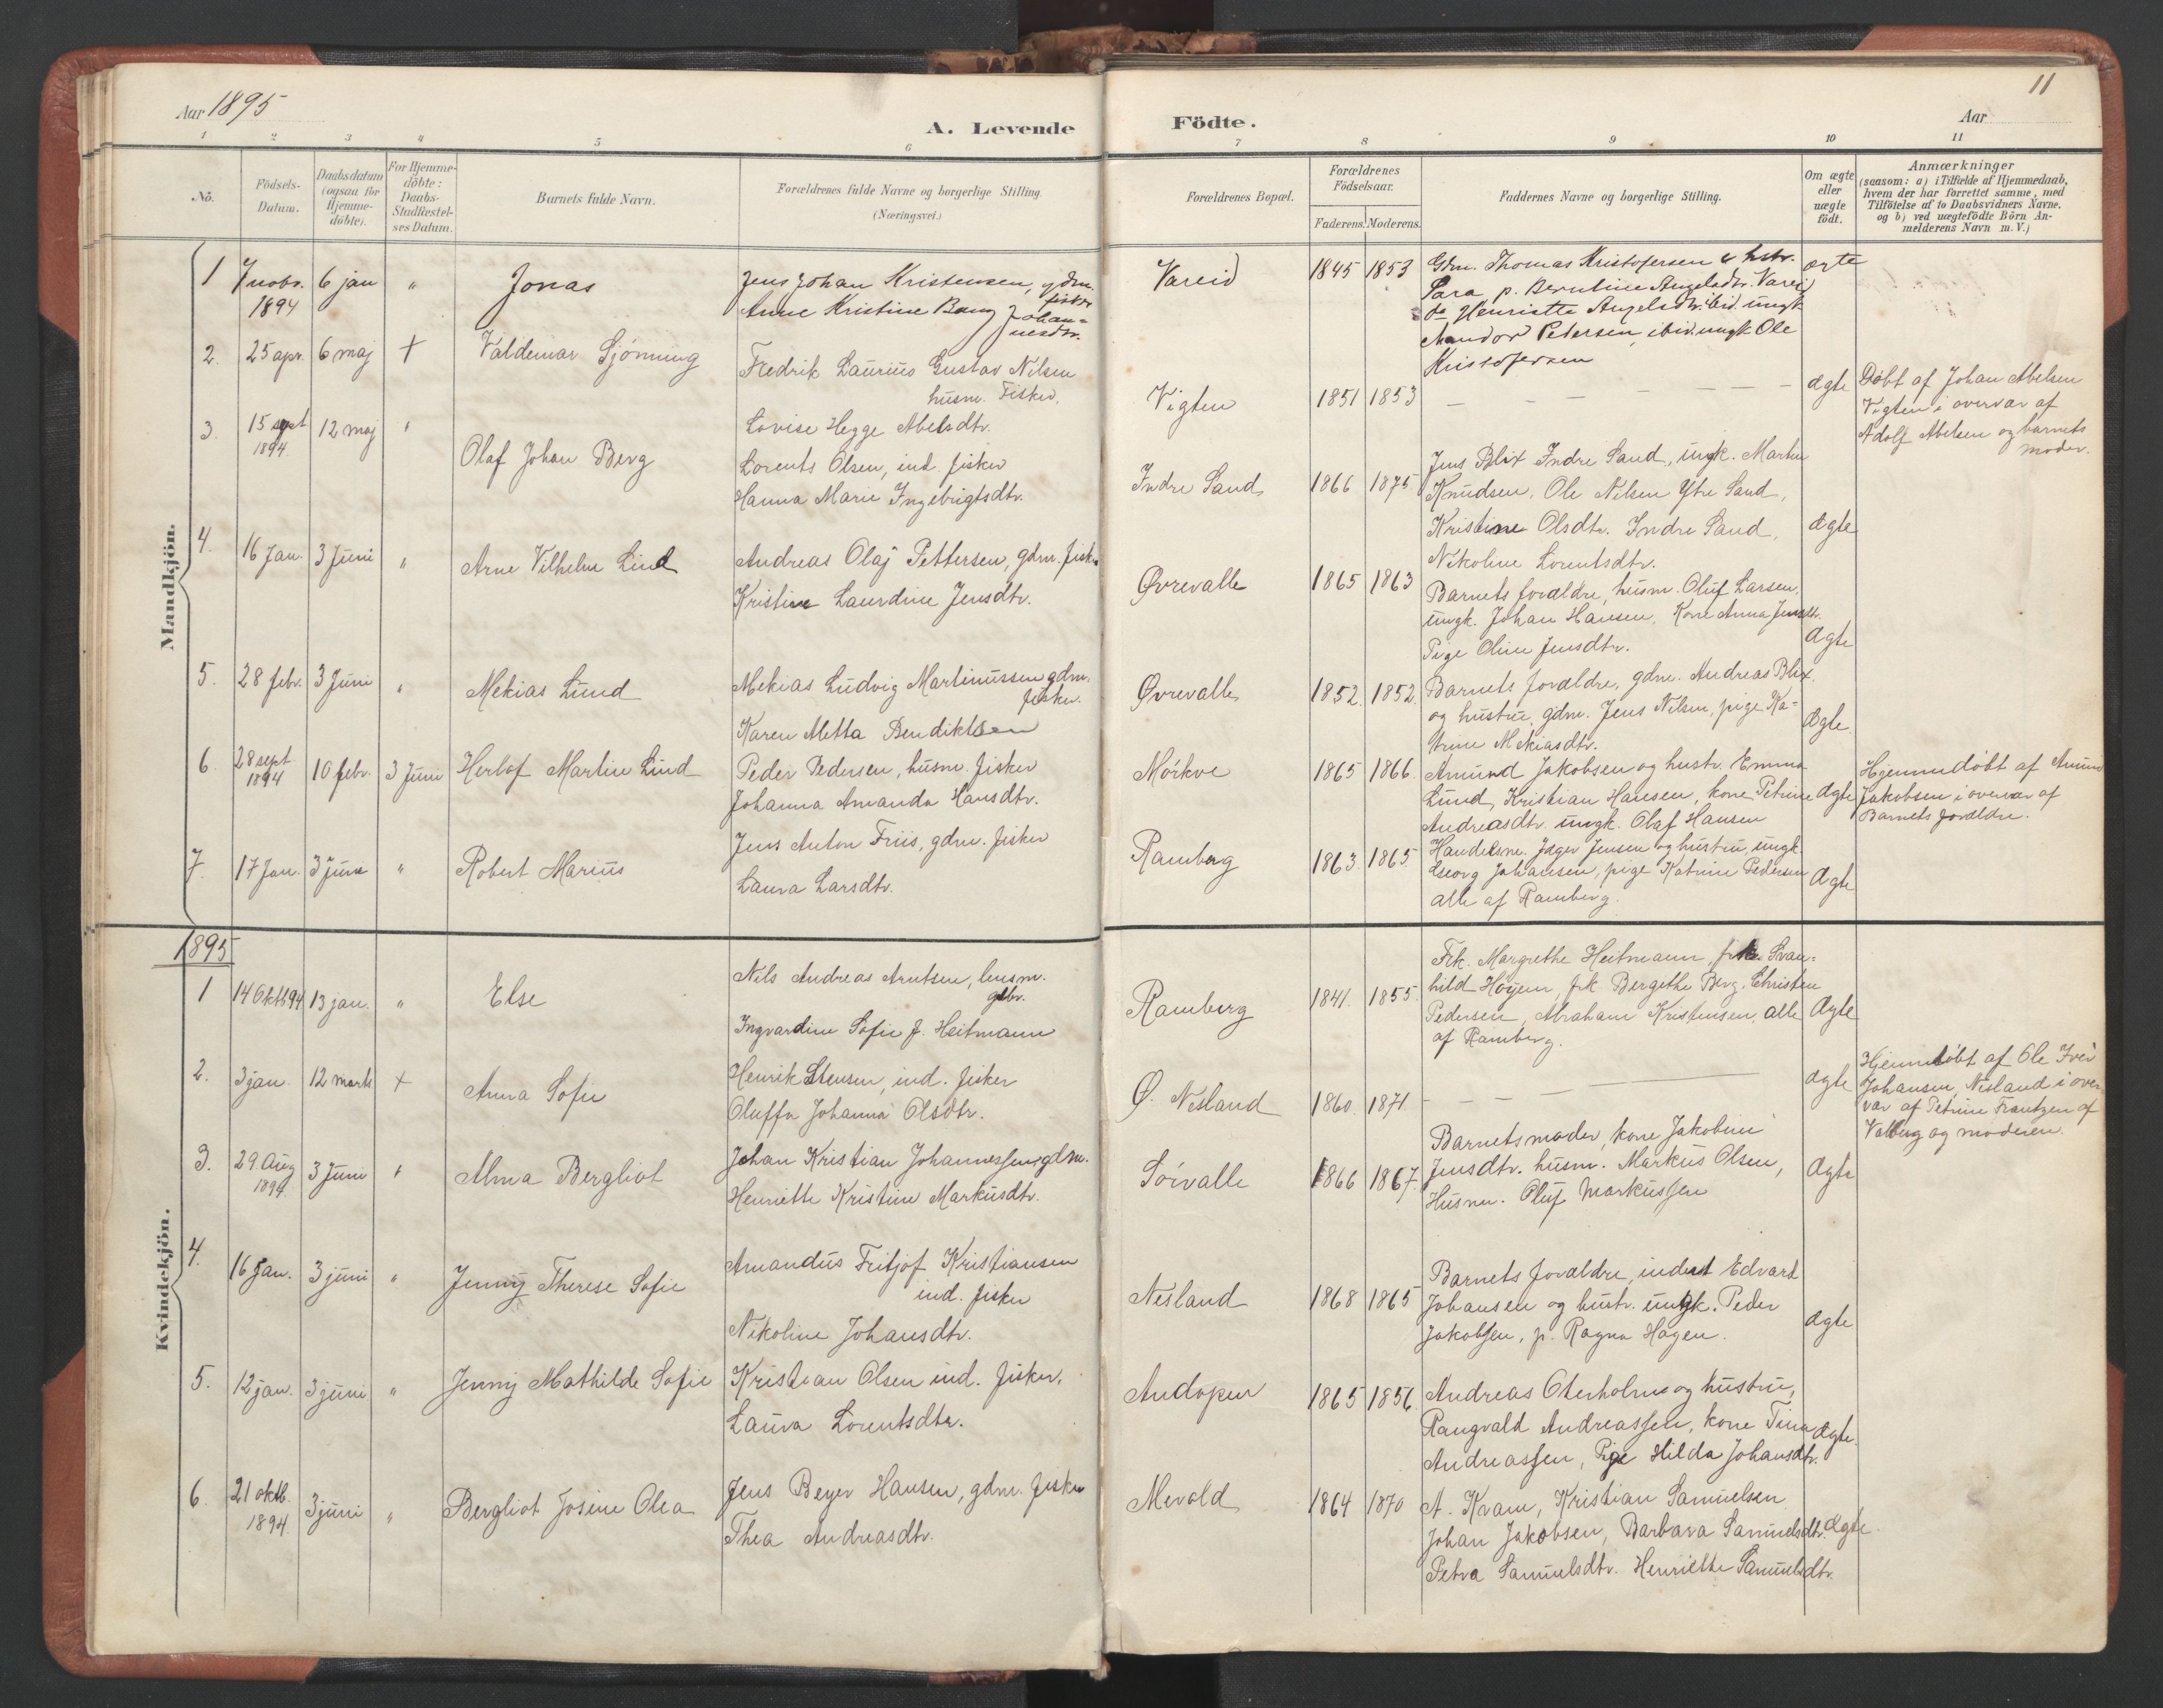 Aar 1895
A. Levende
1 2 3 4 5 6
Nô.
Födsels-
Datum.
Daabsdatum
(ogsaa for
Hjemme-
döbte).
For Hjemme-
döbte:
Daabs-
Stadfæstel-
ses Datum.
Barnets fulde Navn.
Forældrenes fulde Navne og borgerlige Stilling.
(Næringsvei.)
Mandkjön.
1 7 novbr. 6 jan " Jonas Jens Johan Kristensen, gdm.
1894 fisker
Anne Kristine Bang Johan-
nesdtr.
2. 25 apr. 6 maj + Valdemar Sjønning
Fredrik Laurius Gustav Nilsen
husm. Fisker.
Lovise Hegge Abelsdtr.
3. 15 sept 12 maj "
1894.
Olaf Johan Berg
Lorents Olsen, ind. fisker
Hanna Marie Ingebrigtsdtr.
4. 16 Jan. 3 Juni " Arne Vilhelm Lind Andreas Olaj Pettersen, gdm. fisker
Kristine Laurdine Jensdtr.
5. 28 febr. 3 Juni " Mekias Lund Mekias Ludvig Martinussen gdm.
fisker.
Karen Metta Bendiktsen
6. 28 sept 10 febr. 3 Juni Herlof Martin Lund Peder Pedersen, husm. fisker
1894
Johanna Amanda Hansdtr.
7. 17 Jan. 3 Juni " Robert Marius Jens Anton Friis, gdm. fisker
Laura Larsdtr.
1895
Kvindekjön.
1 14 Oktb 94 13 jan. " Else Nils Andreas Arntsen, lensm.
gdbr.
Ingvardine Sofie f. Heitmann
2. 3 jan. 12 marts + Anna Sofie Henrik Stensen, ind. fisker
Oluffa Johanna Olsdtr.
3. 29 Aug 3 Juni " Alma Bergliot Johan Kristian Johannessen gdm.
1894
Henriette Kristine Markusdtr.
4. 16 jan. 3 juni " Jenny Therese Sofie Amandus Fritjof Kristiansen
ind. fisker
Nikoline Johansdtr.
5. 12 jan. 3 juni " Jenny Mathilde Sofie Kristian Olsen ind. fisker,
Laura Lorentsdtr.
6. 21 oktb. 3 juni " Bergliot Josine Olea Jens Beyer Hansen, gdm. fisker
1894
Thea Andreasdtr.
11
Födte.
Aar
7 8 9 10 11
Forældrenes Bopæl.
Forældrenes
Födselsaar.
Faderens. Moderens.
Faddernes Navne og borgerlige Stilling.
Om ægte
eller
uægte
födt.
Anmærkninger
(saasom: a) i Tilfælde af Hjemmedaab,
hvem der har forrettet samme, med
Tilföielse af to Daabsvidners Navne,
og b) ved uægtefödte Börn An-
melderens Navn m.V.)
Vareid 1845 1853 Gdm. Thomas Kristofersen & hstr. ægte
Sara p. Berntine Angelsdtr. Vareid
do Henriette Angelsdtr. ibid. ungk
Mandor Petersen, ibid. ungk Ole
Kristofersen
Vigten 1851 1853 ægte
Døbt af Johan Abelsen
Vigten i overvær af
Adolf Abelsen og barnets
moder.
Indre Sand 1866 1875 Jens Blix Indre Sand, ungk. Martin
Knudsen, Ole Nilsen Ytre Sand,
Kristine Olsdtr. Indre Sand, ægte
Nikoline Lorentsdtr.
Øvrevalle 1865 1863 Barnets forældre, husm. Oluf Larsen,
ungk. Johan Hansen, Kone Anna Jensdtr.
Pige Oline Jensdtr. ægte
Øvrevalle 1852. 1852. Barnets forældre, gdm. Andreas Blix
og hustru, gdm. Jens Nilsen, pige Ka-
trine Mekiasdtr. Ægte
Mörkve 1865 1866. Amund Jakobsen og hustr. Emma
Lund, Kristian Hansen, kone Petrine ægte
Andreasdtr. ungk. Olaf Hansen
Hjemmedøbt af Amund
Jakobsen i overvær af
Barnets forældre.
Ramberg 1863 1865 Handelsm. Jager Jensen og hustru, ungk.
Georg Johansen, pige Katrine Pedersen Ægte
alle af Ramberg.
Ramberg 1841. 1855. Frk. Margrethe Heitmann, frk. Svan-
hild Höyem, frk Bergethe Berg, Christen
Pedersen, Abraham Kristensen, alle Ægte
af Ramberg.
Ø. Nesland 1860. 1871. ægte
Hjemmedøbt af Ole
Johansen, Nesland i over-
vær af Petrine Frantzen af
Valberg og moderen.
Soivalle 1866 1867. Barnets moder, kone Jakobine
Jensdtr. husm. Markus Olsen, Ægte
Husm. Oluf Markussen
Nesland 1868 1865 Barnets forældre, inderst Edvart
Johansen og hustr. ungk. Peder
Jakobsen, p. Ragna Hagen. ægte
Andopen 1865 1856 Andreas Oterholm og hustru,
Rangvald Andreassen, kone Tina ægte.
Andreassen, Pige Hilda Johansdtr.
Mevold 1864 1870 A. Kvam, Kristian Samuelsen
Johan Jakobsen, Barbara Samuelsdtr. ægte.
Petra Samuelsdtr. Henriette Samuelsdtr.